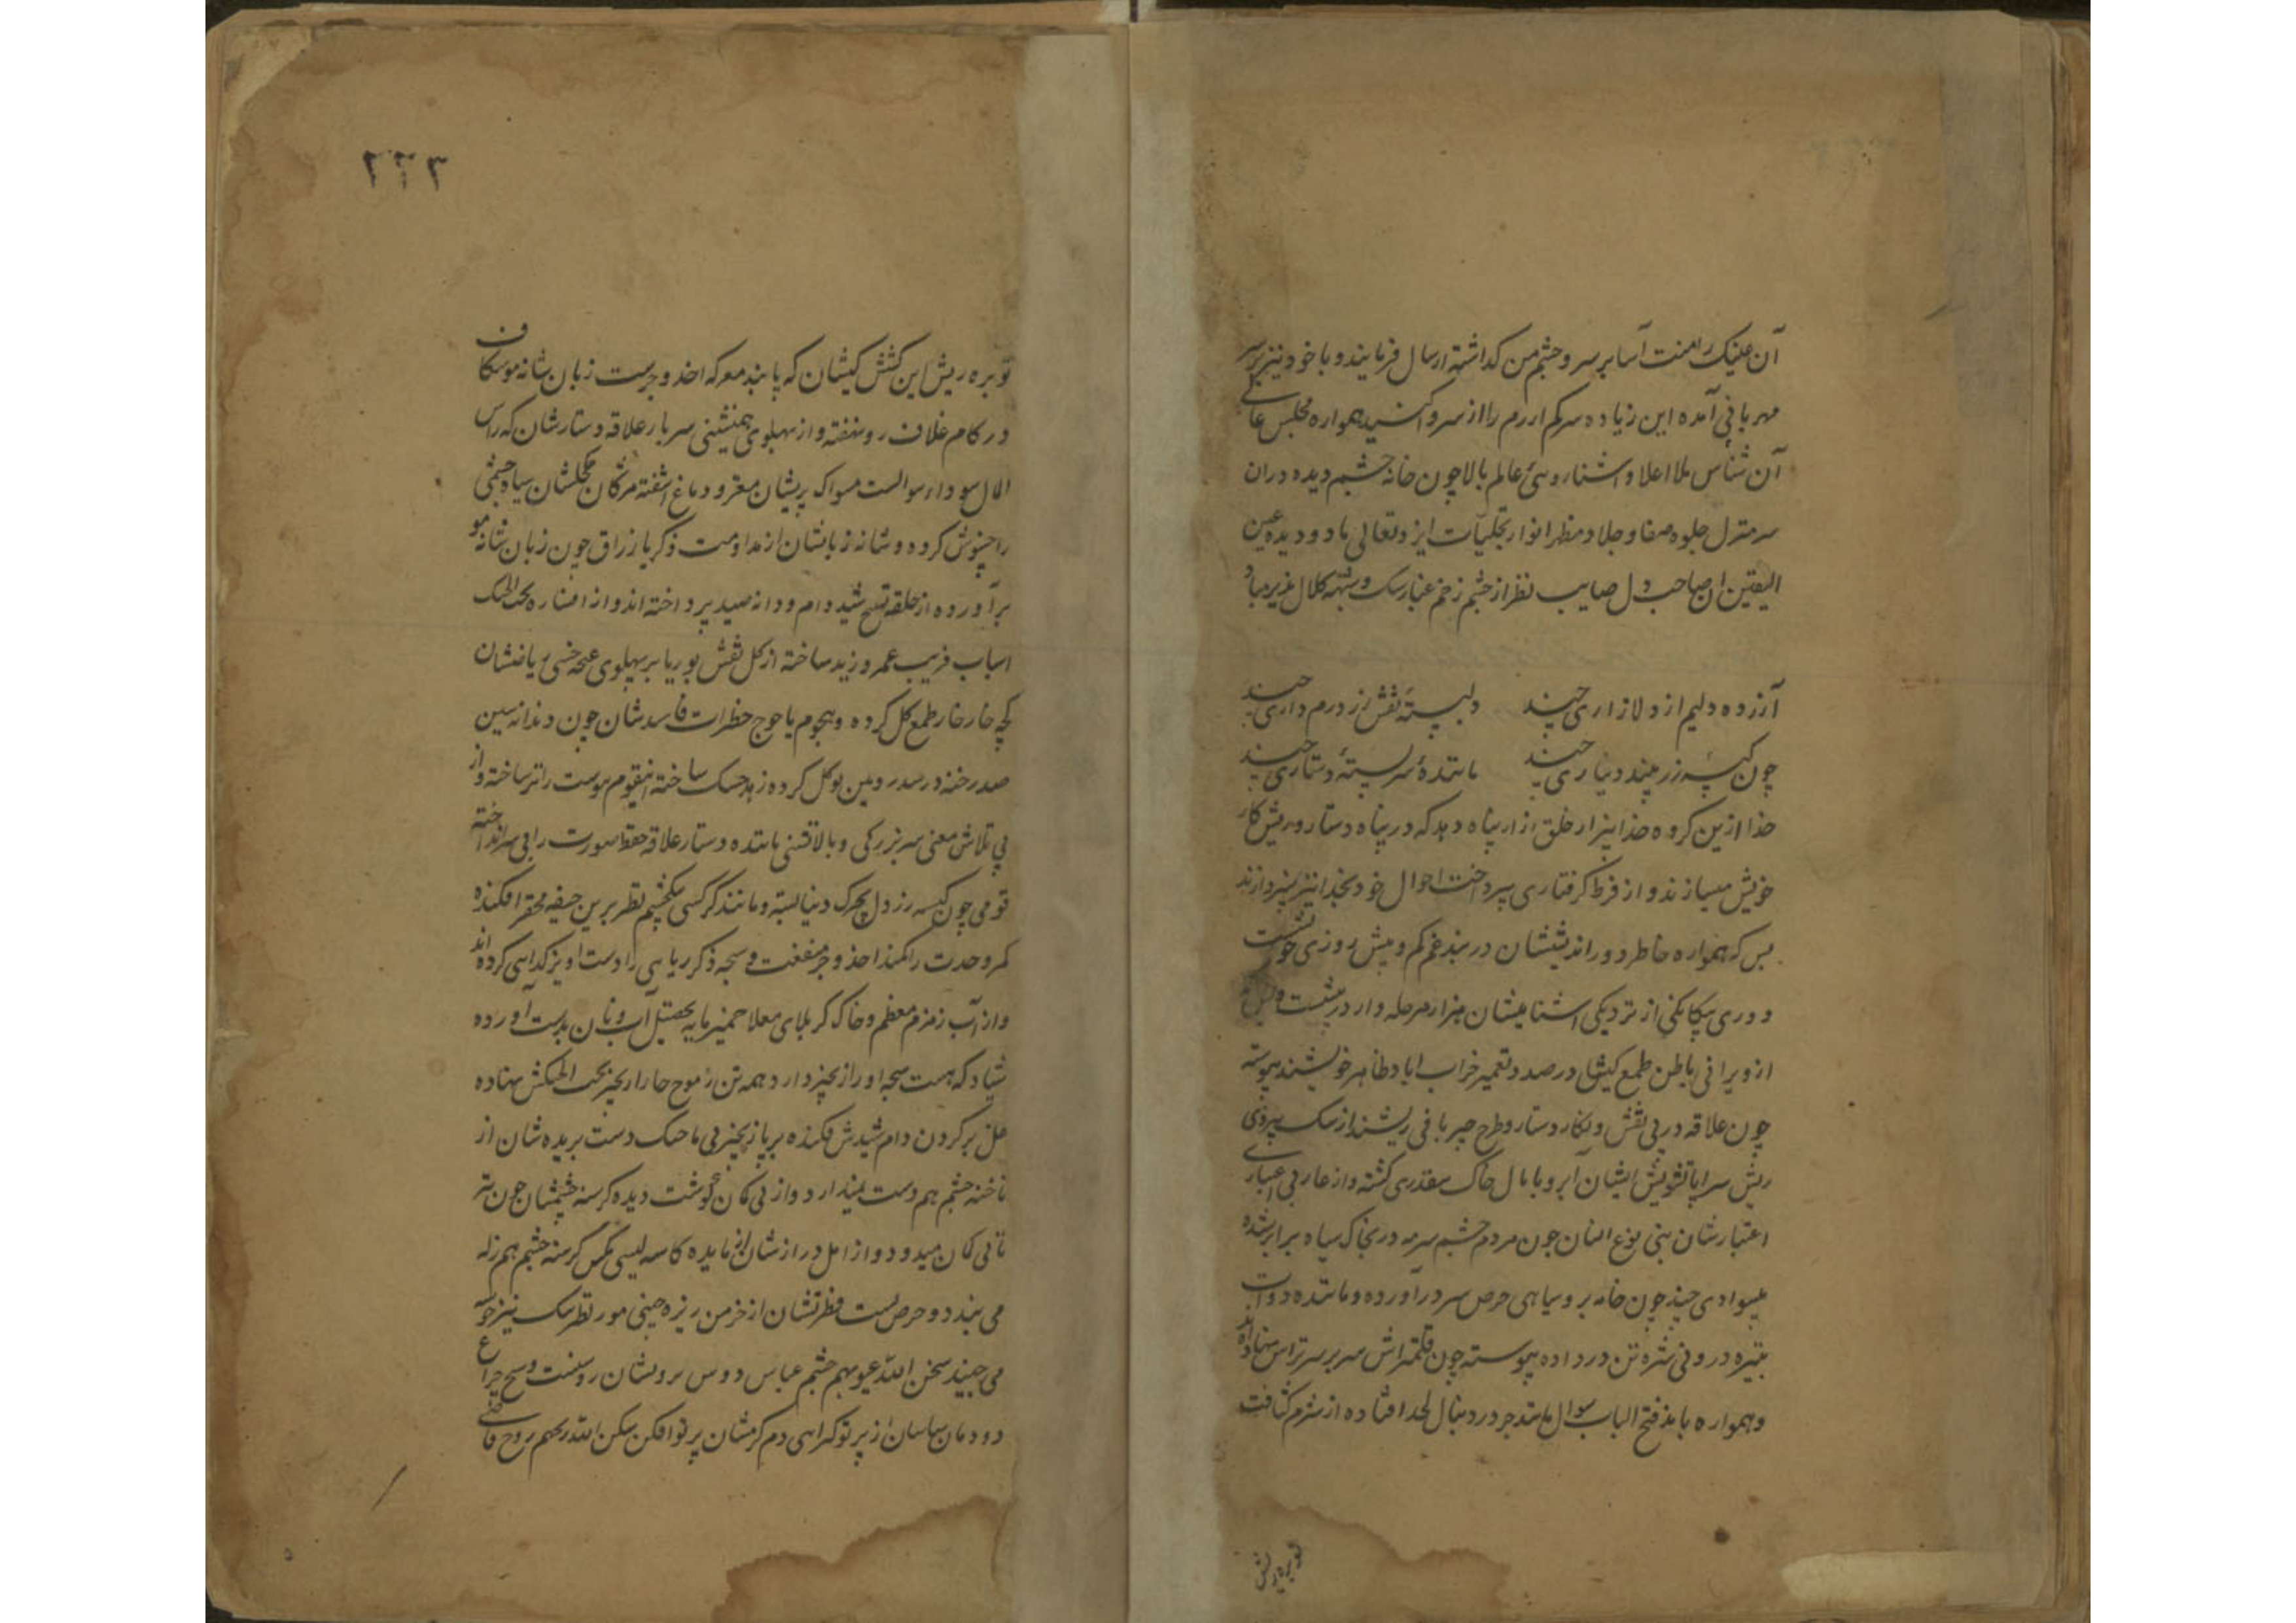 آن عینک را منت آسا بر سر و چشم من کداشته ارسال فرمایند و با خود نیز بر سر
مهربانی آمده این زیاده سرکم ازرم را از سر وا کنند همواره مجلس عالی
آن شناس ملا اعلا و اشنا روی عالم بالا چون خانه چشم دیده دران
سر منزل جلوه صفا و جلا و مظهر انوار تجلیات ایزد تعالی باد و دیده عین
الیقین ان صاحب دل صایب نظر از چشم زخم غبار شک و شبهه کلال نپذیرد باد
آزرده دلیم از دلازاری چند دلبسته نقش زر و درم داری چند
چون کیسه زر پیند دیناری چند مانندهٔ سر بستهٔ دستاری چند
خدا ازین کروه خدا بیزار خلق ازار پناه دهد که در پناه دستار و ریش کار
خویش میسازند و از فرط کرفتاری بپرداخت احوال خود بخدا نیز نپردازند
بس که همواره خاطر دور اندیششان در بند غم کم و بیش روزی خودست
دوری بیکانکی از نزدیکی اشناییشان هزار مرحله وار در پیشست و پس
از ویرانی باطن طمع کیشان در صدد تعمیر خراب اباد ظاهر خویشند پیوسته
چون علاقه در پی نقش و نکار دستار و طرح چیر بافی ریشند از سبک پروی
ریش سراپا تشویش ایشان آبرو پامال خاک بیقدری کشته و از عار بی اعتباری
اعتبارشان بنی نوع انسان چون مردم چشم سرمه در بخاک سیاه برابر شده
بیسوادی چند چون خامه بر و سیاهی حرص سر در آورده و ماننده دوات
بتیره درونی شره تن در داده پیوسته چون قلمتراش سر بر سر تراش نهاده اند
و همواره بامد فتح الباب سوال مانند جر در دنبال لحد افتاده از شرم کثافت
توبره ریش
۲۲۳
توبره ریش این کشش کیشان که پابند معرکه اخذ و جرست زبان شانه موشکاف
در کام غلاف رو نهفته و از پهلوی همنشینی سر بار علاقه دستارشان که راس
المال سودا و سوالست مسواک پریشان مغز و دماغ اشفته مژکان مکحلشان سیاه چشمی
را چشم پوش کرده و شانه زبانشان از مداومت ذکر یا رزاق چون زبان شانه مو
برآورده از حلقه تسبیح شید دام و دانه صید پرداخته اند و از افشاره تحت الحنک
اسباب فریب عمرو و زید ساخته از کل نقش بوریا بر پهلوی غنچه خسپی ریاضتشان
کچه خارخار طمع کل کرده و هجوم یاجوج خطرات فاسدشان چون دندانه سین
صد رخنه در سد روین توکل کرده زهد خشک ساخته اینقوم پوست را تر ساخته و از
پی تلاش معنی سر بزرکی و بالانشینی ماننده دستار علاقه حفظ صورت را بی سر انداخته
قومی چون کیسه زر دل بچرک دنیا بسته و مانند کرکس یکچشم نظر برین جیفه محقر افکنده
کمر وحدت را کمند اخذ و جر منفعت و سبحه ذکر ریایی را دست اویز کدایی کرده اند
و از آب زمزم معظم و خاک کربلای معلا خمیر مایه تحصیل آب و نان بدست آورده
شیاد که هست سبحه او را زنجیر دارد همه تن ز موج خارا زنجیر تحت الحنکش نهاده
غل بر کردن دام شیدش فکنده بر پا زنجیر بی ماحک دست بریده شان از
ناخنه چشم هم دست نمیدارد و از پی کان کوشت دیده کرسنه چشمشان چون تیر
تا پی کان میدود و از امل درازشان از مایده کاسه لیسی مکس کرسنه چشم هم زله
می بندد و حرص پست فطرتشان از خرمن ریزه چینی مور تظرسک نیز خوشه
می چیند سخن الله عیوبهم چشم عباس دوس بروشان روشنست و سبح چراغ
دودمان ساسان از پرتو کمراهی دم کرمشان پرتو افکن سکن الله ریحهم روح قاضی